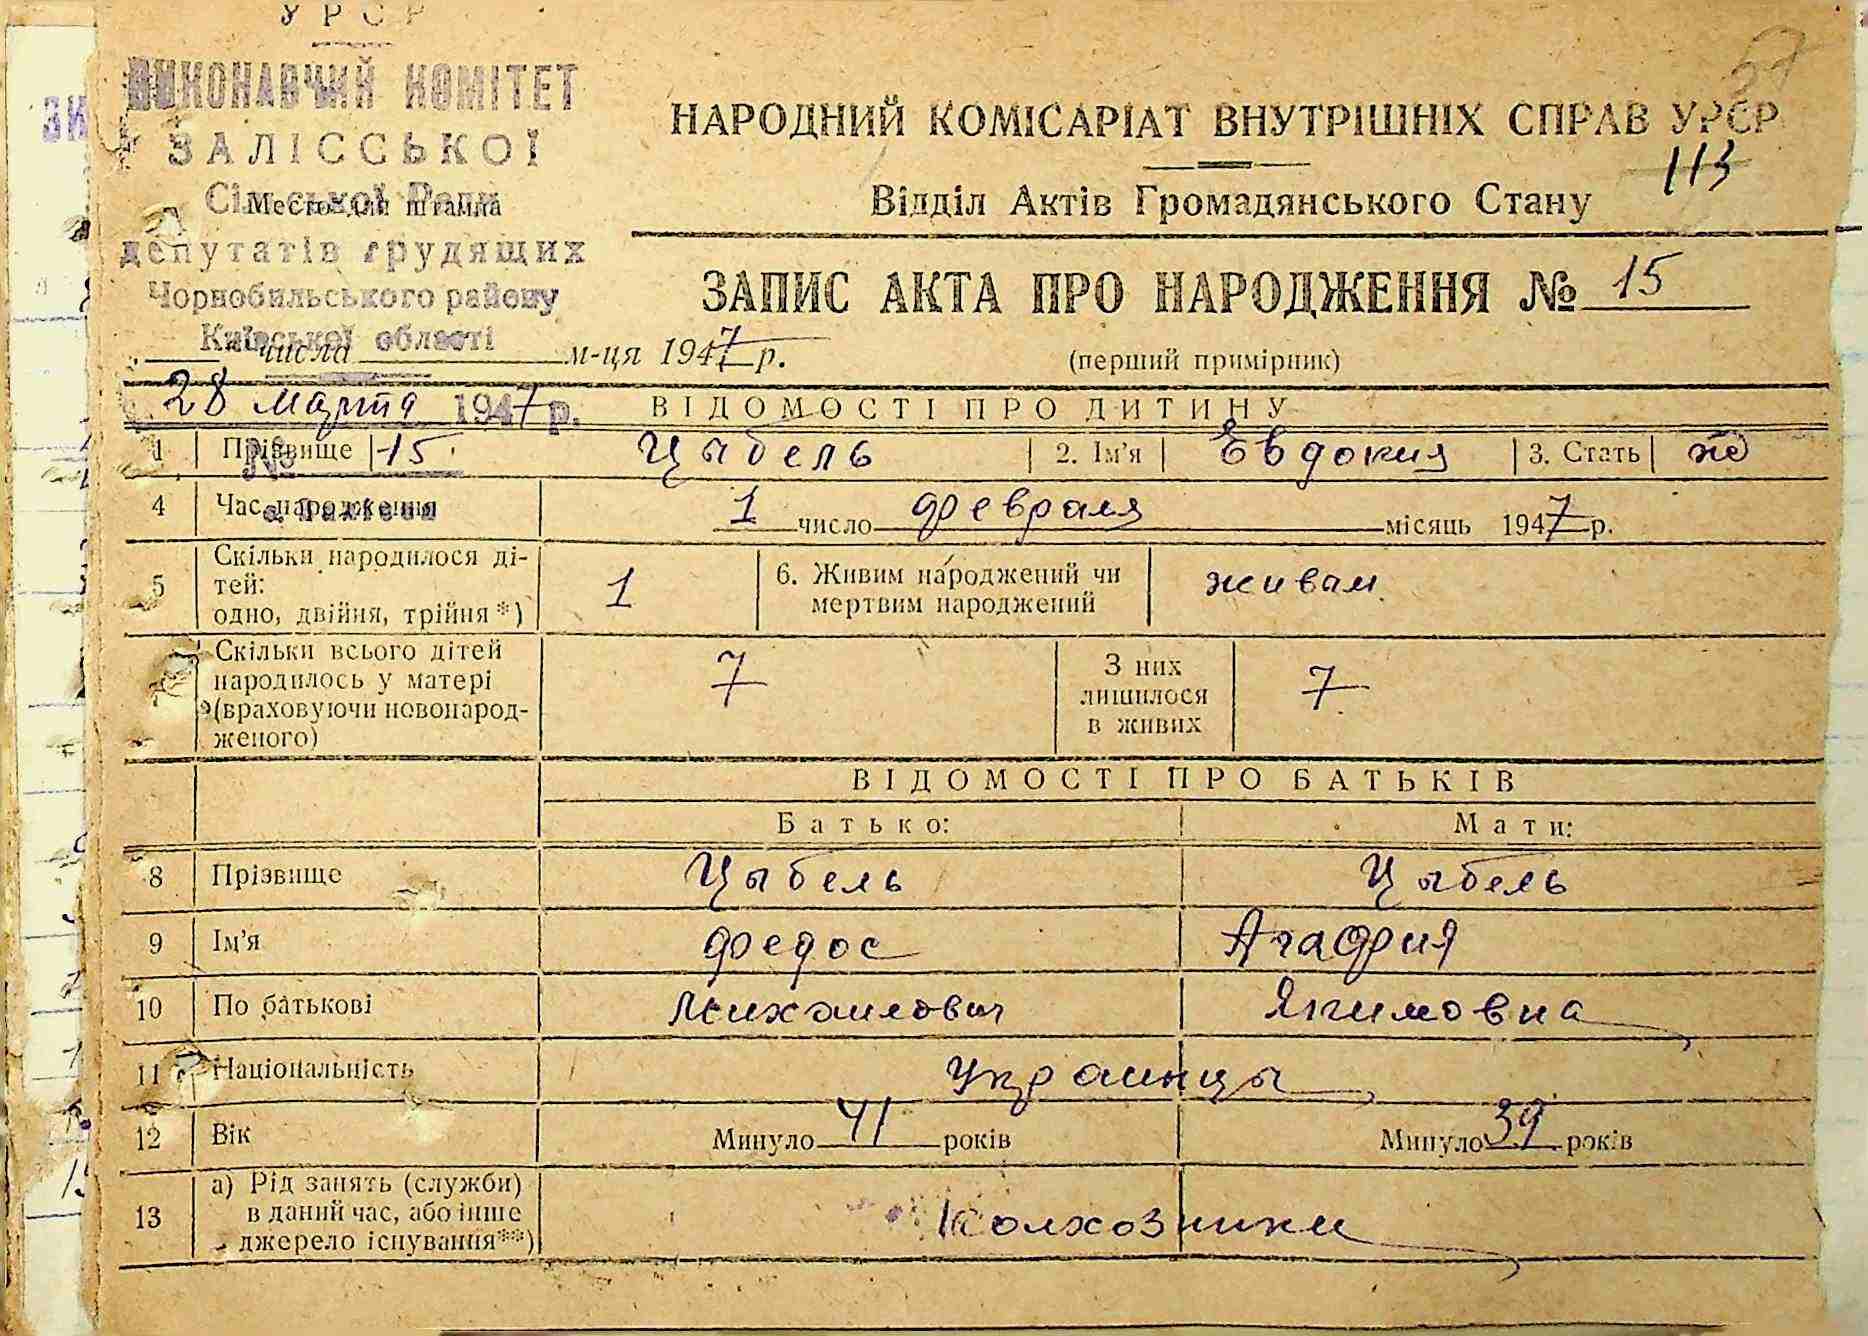 УРСР
ВИКОНАВЧИЙ КОМІТЕТ
ЗАЛІССЬКОЇ
Сільської Ради
Место для штампа
депутатів трудящих
Чорнобильського району
Київської області
57
НАРОДНИЙ КОМІСАРІАТ ВНУТРІШНІХ СПРАВ УРСР
113
Відділ Актів Громадянського Стану
ЗАПИС АКТА ПРО НАРОДЖЕННЯ № 15
числа м-ця 1947 р. (перший примірник)
28 марта 1947 р. ВІДОМОСТІ ПРО ДИТИНУ
1 Прізвище № 15 Цыбель 2. Ім'я Евдокия 3. Стать ж
4 Час народження 1 число февраля місяць 1947 р.
5 Скільки народилося ді-
тей:
одно, двійня, трійня *) 1 6. Живим народжений чи
мертвим народжений живам
Скільки всього дітей
народилось у матері
(враховуючи новонарод-
женого) 7 З них
лишилося
в живих 7
ВІДОМОСТІ ПРО БАТЬКІВ
Батько: Мати:
8 Прізвище Цыбель Цыбель
9 Ім'я Федос Агафия
10 По батькові Михайлович Якимовна
11 Національність Украинцы
12 Вік Минуло 41 років Минуло 39 років
13 а) Рід занять (служби)
в даний час, або інше
джерело існування**) Колхозники